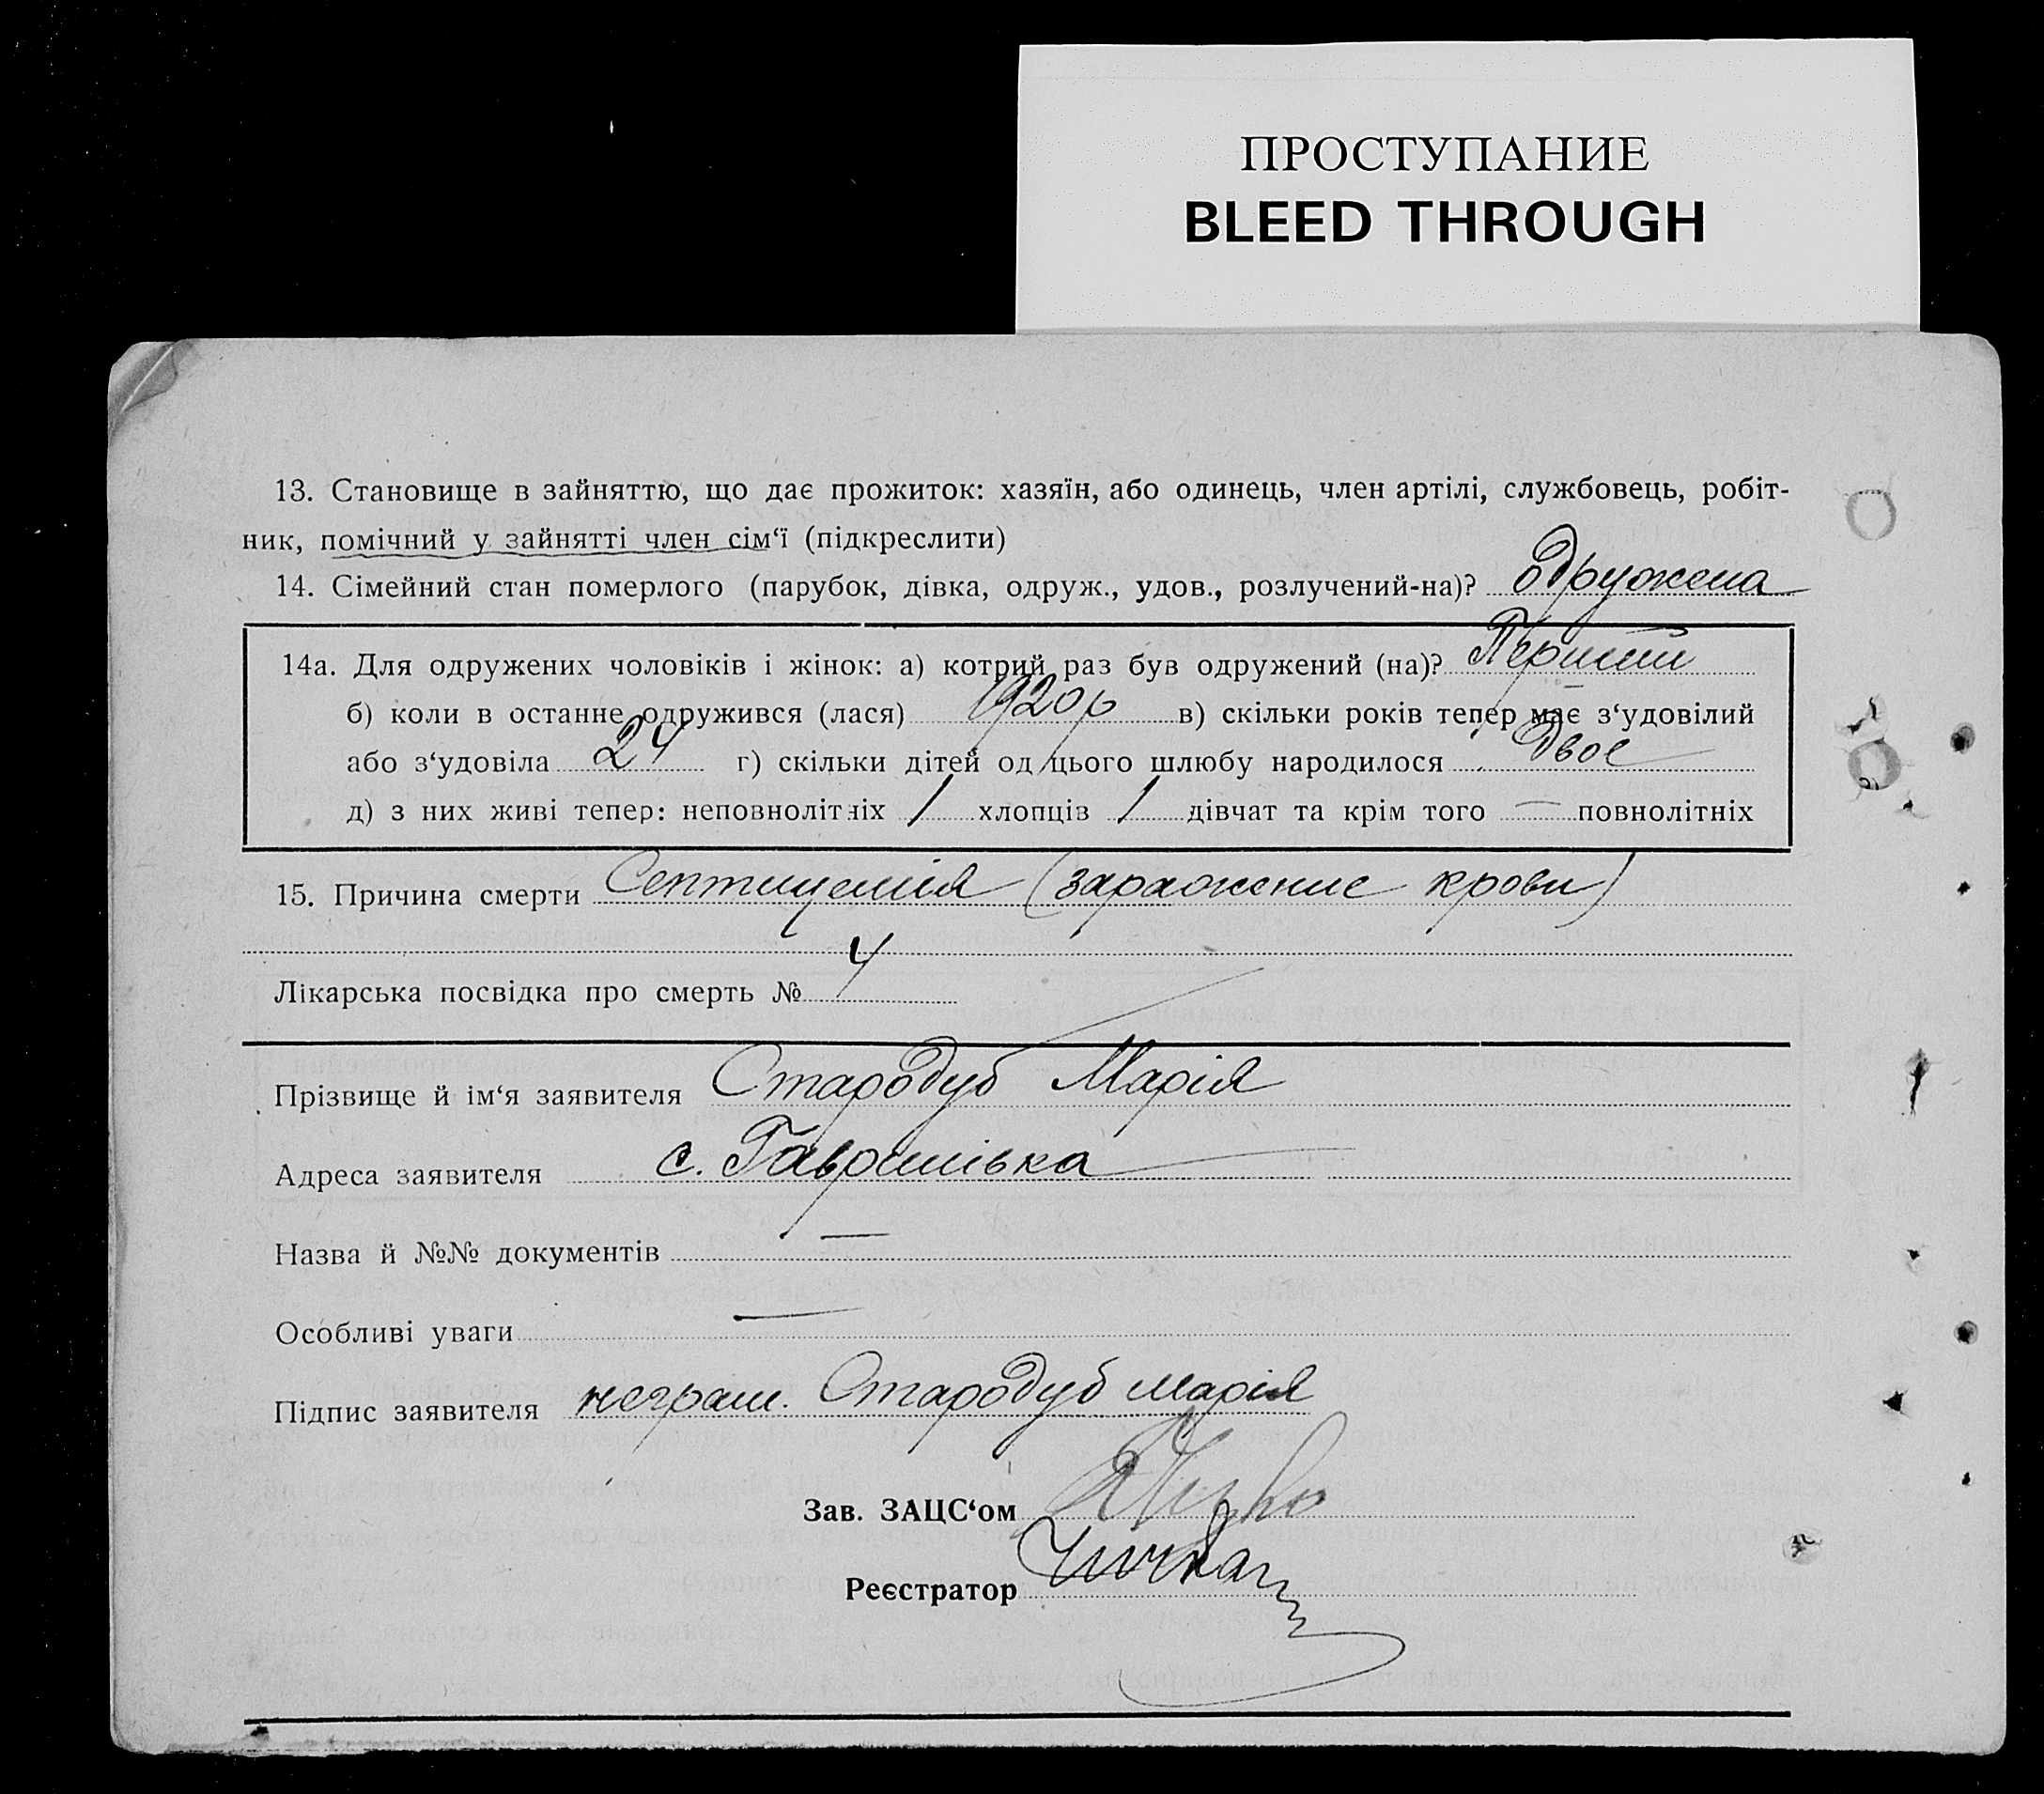 ПРОСТУПАНИЕ
BLEED THROUGH
13. Становище в зайняттю, що дає прожиток: хазяїн, або одинець, член артілі, службовець, робіт-
ник, помічний у зайнятті член сім‘ї (підкреслити)
14. Сімейний стан померлого (парубок, дівка, одруж., удов., розлучений-на)? одружена
14а. Для одружених чоловіків і жінок: а) котрий раз був одружений (на)? Перший
б) коли в останнє одружився (лася) 1920 р в) скільки років тепер має з‘удовілий
або з‘удовіла 24 г) скільки дітей од цього шлюбу народилося двоє
д) з них живі тепер: неповнолітніх 1 хлопців 1 дівчат та крім того — повнолітніх
15. Причина смерти Септицемія (заражение крови)
Лікарська посвідка про смерть № 4
Прізвище й ім‘я заявителя Стародуб Марія
Адреса заявителя с. Гавришівка
Назва й №№ документів —
Особливі уваги —
Підпис заявителя неграм. Стародуб Марія
Зав. ЗАЦС‘ом
Реєстратор